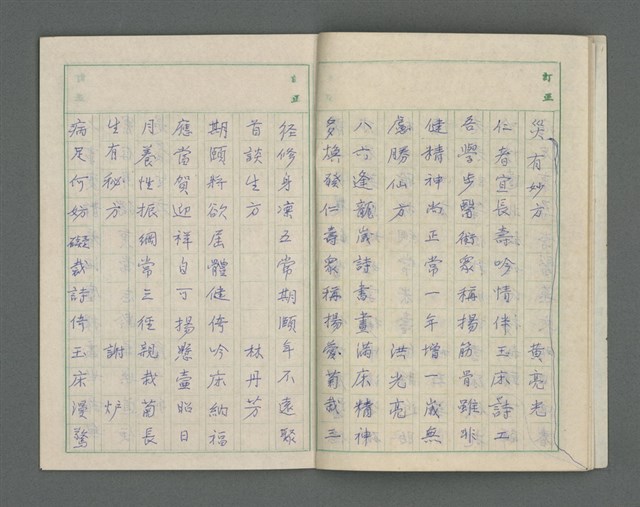 訂正
災有妙方　黃亮光
仁者宜長壽吟情伴玉床詩工
吾學步醫術眾稱揚筋骨雖非
健精神尚正常一年增一歲無
處勝仙方　洪光亮
八六逢龍歲詩書畫滿床精神
多煥發仁壽眾稱揚愛菊栽三
訂正
徑修身凜五常期頤年不遠聚
首談生方　林丹芳
期頤將欲屆體健倚吟床納福
應當賀迎祥自可揚懸壺昭日
月養性振綱常三徑親栽菊長
生有秘方　謝炉
病足何妨礙栽詩倚玉床漫驚